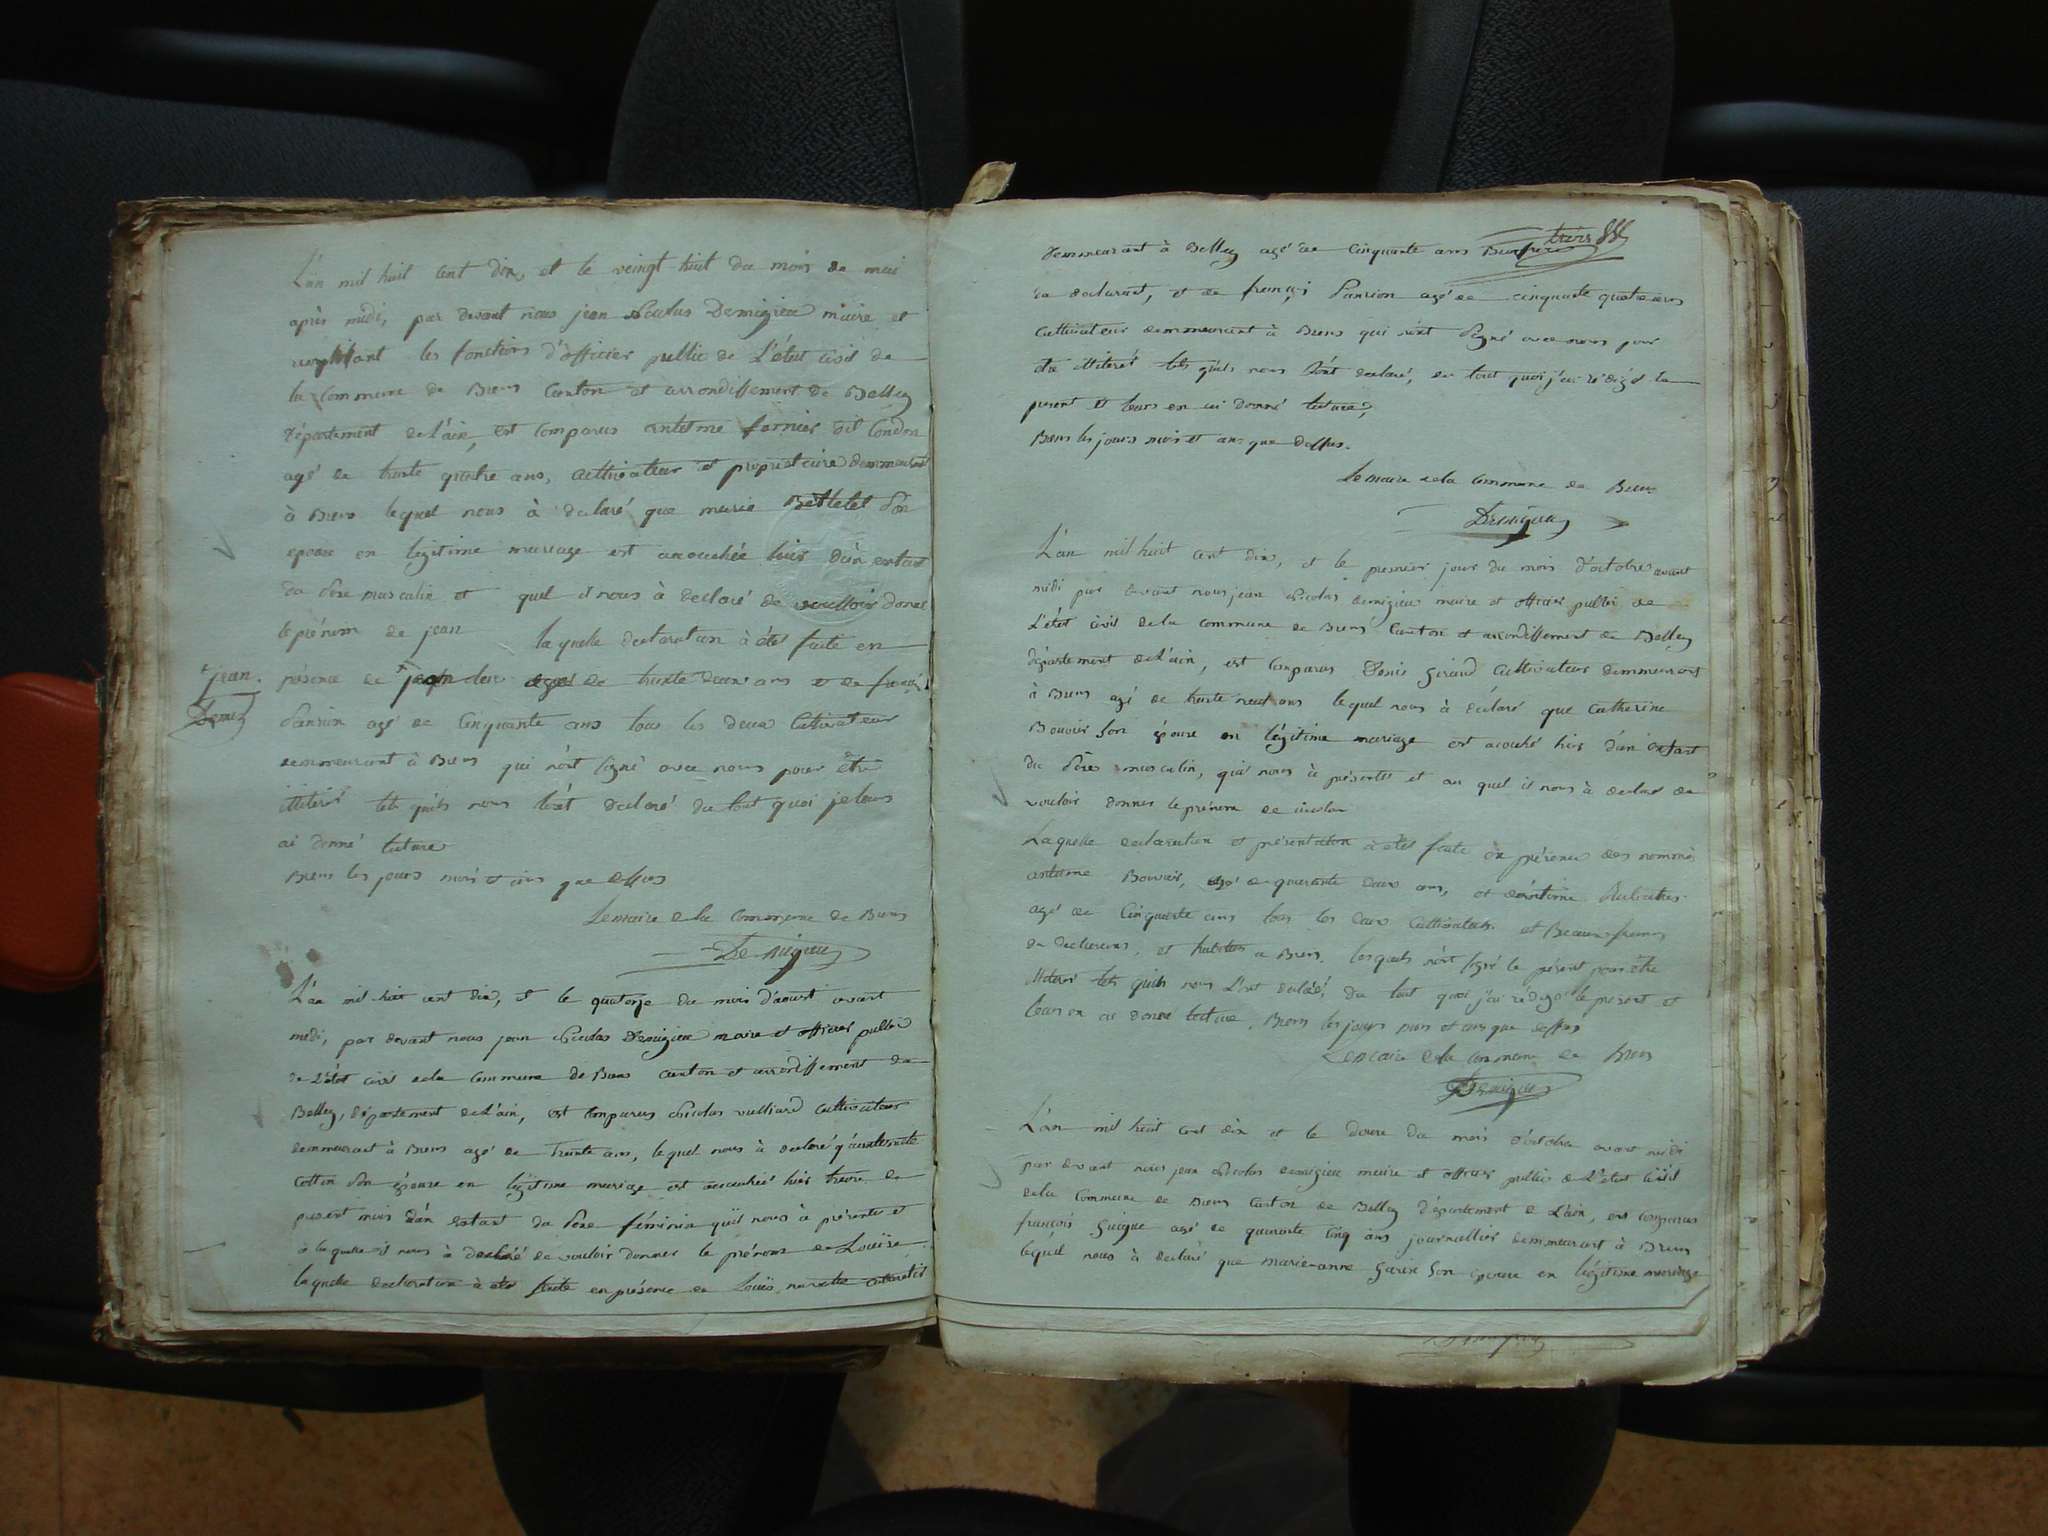 L'an mil huit cent dix, et le veingt huit du mois de mai
après midi, par devant nous jean Nicolas Demigieu maire et
les fonctions d'officier public de L'état civil de
la Commune de Brens Canton et arrondissement de Belley
département de L'ain, est comparus antelme fornier dit Condon
agé de trente quatre ans, cultivateur et proprietaire demmeurant
à Brens lequel nous à declaré que marie Béthetet Son
epouse en legitime mariage est acouchée hier d'un enfant
du Sexe masculin et quel il nous à declaré de voulloir donné
le prénom de jean laquelle declaration à été faite en
présence de agé de trente deux ans et de françoi
jean
Demig
Pansion agé de Cinquante ans tous les deux Cultivateur
demmeurant à Brens qui n'ont signé avec nous pour être
illiteré tels qu'ils nous l'ont declaré du tout quoi je leurs
ai donné lecture
Brens les jours mois et ans que dessus
Le maire de la commune de Brens
Demigieu
L'an mil huit cent dix, et le quatorze du mois d'aoust avant
midi, par devant nous jean Nicolas Demigieu maire et officier public
de L'état civil de la Commune de Brens canton et arrondissement de
Belley, département de L'ain, est comparus Nicolas vulliard cultivateur
demmeurant à Brens agé de Trente ans, lequel nous à declaré
Cottin Son épouse en légitime mariage est acouchée hier treize de
present mois d'un enfant du Sexe féminin qu'il nous à présenté et
à laquelle il nous à declaré de vouloir donner le prénom de Louïse
laquelle declaration à eté faite en présence de Louis
trois
demmeurant à Belley agé de Cinquante ans
du declarant, et de françoi Pansion agé de cinquante quatre ans
Cultivateur demmeurant à Brens qui n'ont Signé avec nous pour
être illiteré tels qu'ils nous L'ont declaré, du tout quoi j'ai rédigé le
present et leurs en ai donné lecture,
Brens les jours mois et ans que dessus.
Le maire de la commune de Brens
Demigieu
L'an mil huit cent dix, et le premier jour du mois d'octobre avant
midi par devant nous jean Nicolas demigieu maire et officier public de
L'état civil de la commune de Brens Canton et arrondissement de Belley
département de L'ain, est Comparus Denis Girard Cultivateur demmeurant
à Brens agé de trente neuf ans lequel nous à déclaré que Catherine
Bouvier Son épouse en légitime mariage est acouché hier d'un enfant
du Sexe masculin, qui nous à présenté et au quel il nous à declaré de
vouloir donner le prénom de nicolas
Laquelle declaration et présentation à été faite en présence des nommés
antelme Bouvier, agé de quarante deux ans, et d'antelme
agé de Cinquante ans tous les deux Cultivateurs et Beaux-freres
du declarant, et habitans a Brens. lesquels n'ont signé le présent pour être
illiteré tels qu'ils nous L'ont declaré, du tout quoi j'ai rédigé le present et
leurs en ai donné lecture, Brens les jours mois et ans que dessus
Le maire de la commune de Brens
Demigieu
L'an mil huit cent dix et le douze du mois d'octobre avant midi
par devant nous jean Nicolas demigieu maire et officier public de L'état civil
de la Commune de Brens Canton de Belley département de L'ain, est comparus
françois Guigue agé de quarante Cinq ans journallier demmeurant à Brens
lequel nous à declaré que marie-anne Son epouse en légitime mariage